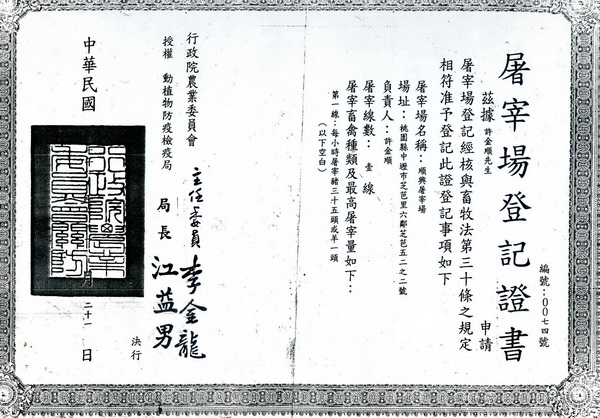 屠宰場登記證書
編號：00七四號
茲據許金順先生 申請
屠宰場登記經核與畜牧法第三十條之規定
相符准予登記此證登記事項如下
屠宰場名稱：順興屠宰場
場址：桃園縣中壢市芝芭里六鄰芝芭五二之二號
負責人：許金順
屠宰線數：壹線
屠宰畜禽種類及最高屠宰量如下：
第一線：每小時屠宰豬三十五頭或羊一頭
（以下空白）
行政院農業委員會
主任委員 李金龍
授權 動植物防疫檢疫局
局長 江益男
決行
中華民國 月二十一日